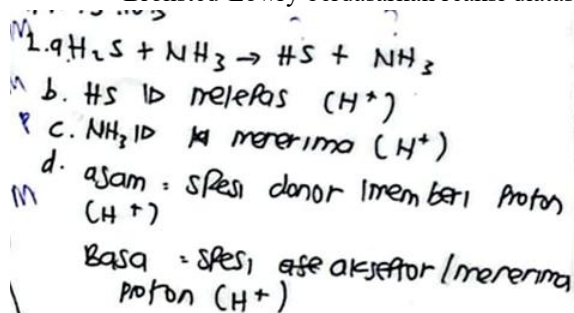 1.a H₂S + NH₃ → HS + NH₃
M
b. HS ID melepas (H⁺)
P c. NH₃ ID menerima (H⁺)
d. asam = spesi donor /memberi proton
M (H⁺)
Basa = spesi akseptor /menerima
proton (H⁺)